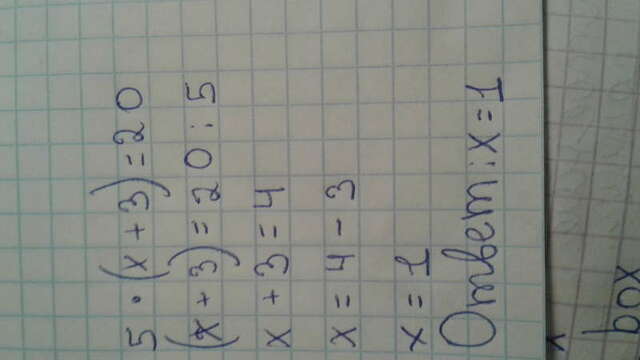 5 · (x + 3) = 20
(x + 3) = 20 : 5
x + 3 = 4
x = 4 - 3
x = 1
Ответ: x = 1
box